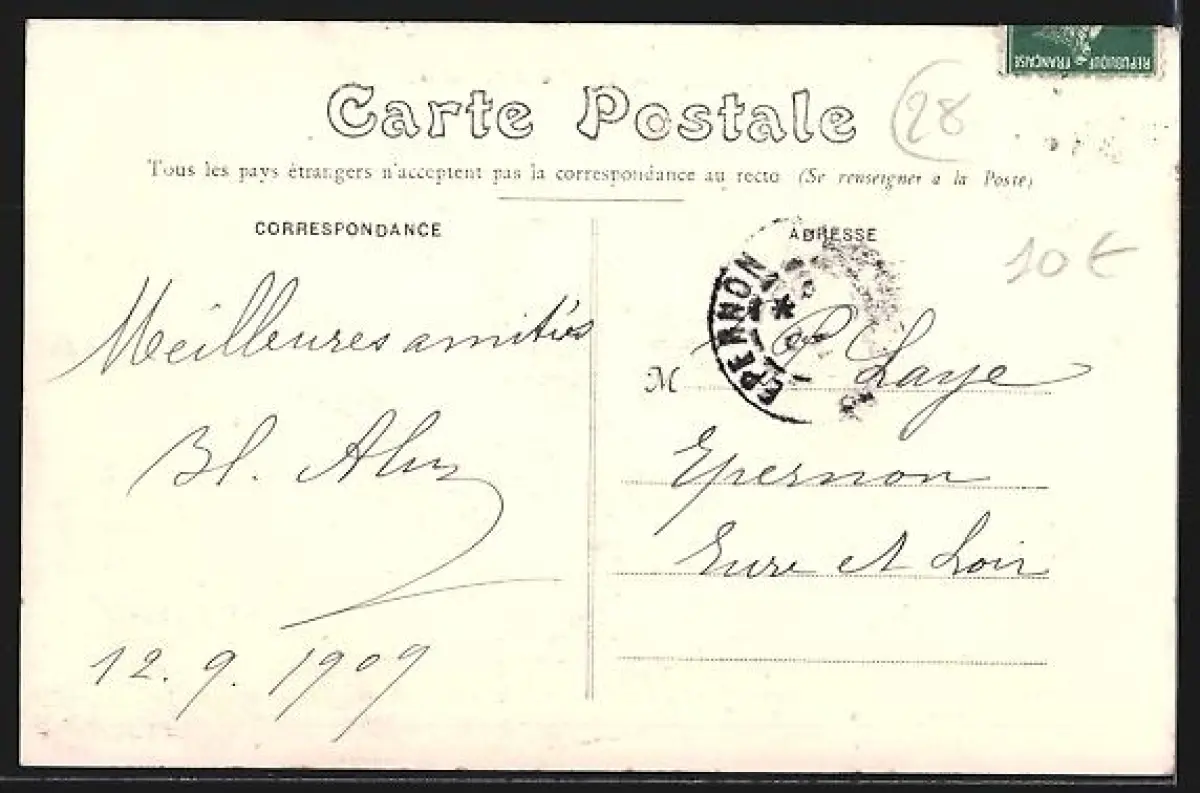 RÉPUBLIQUE FRANÇAISE
Carte Postale
28
Tous les pays étrangers n'acceptent pas la correspondance au recto (Se renseigner à la Poste)
CORRESPONDANCE
ADRESSE
10€
EPERNON
Meilleures amitiés
M P. Laye
Epernon
Eure et Loir
12.9.1909